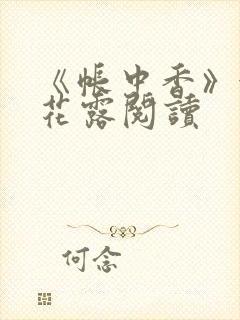 《帳中香》
花露閱讀
何念